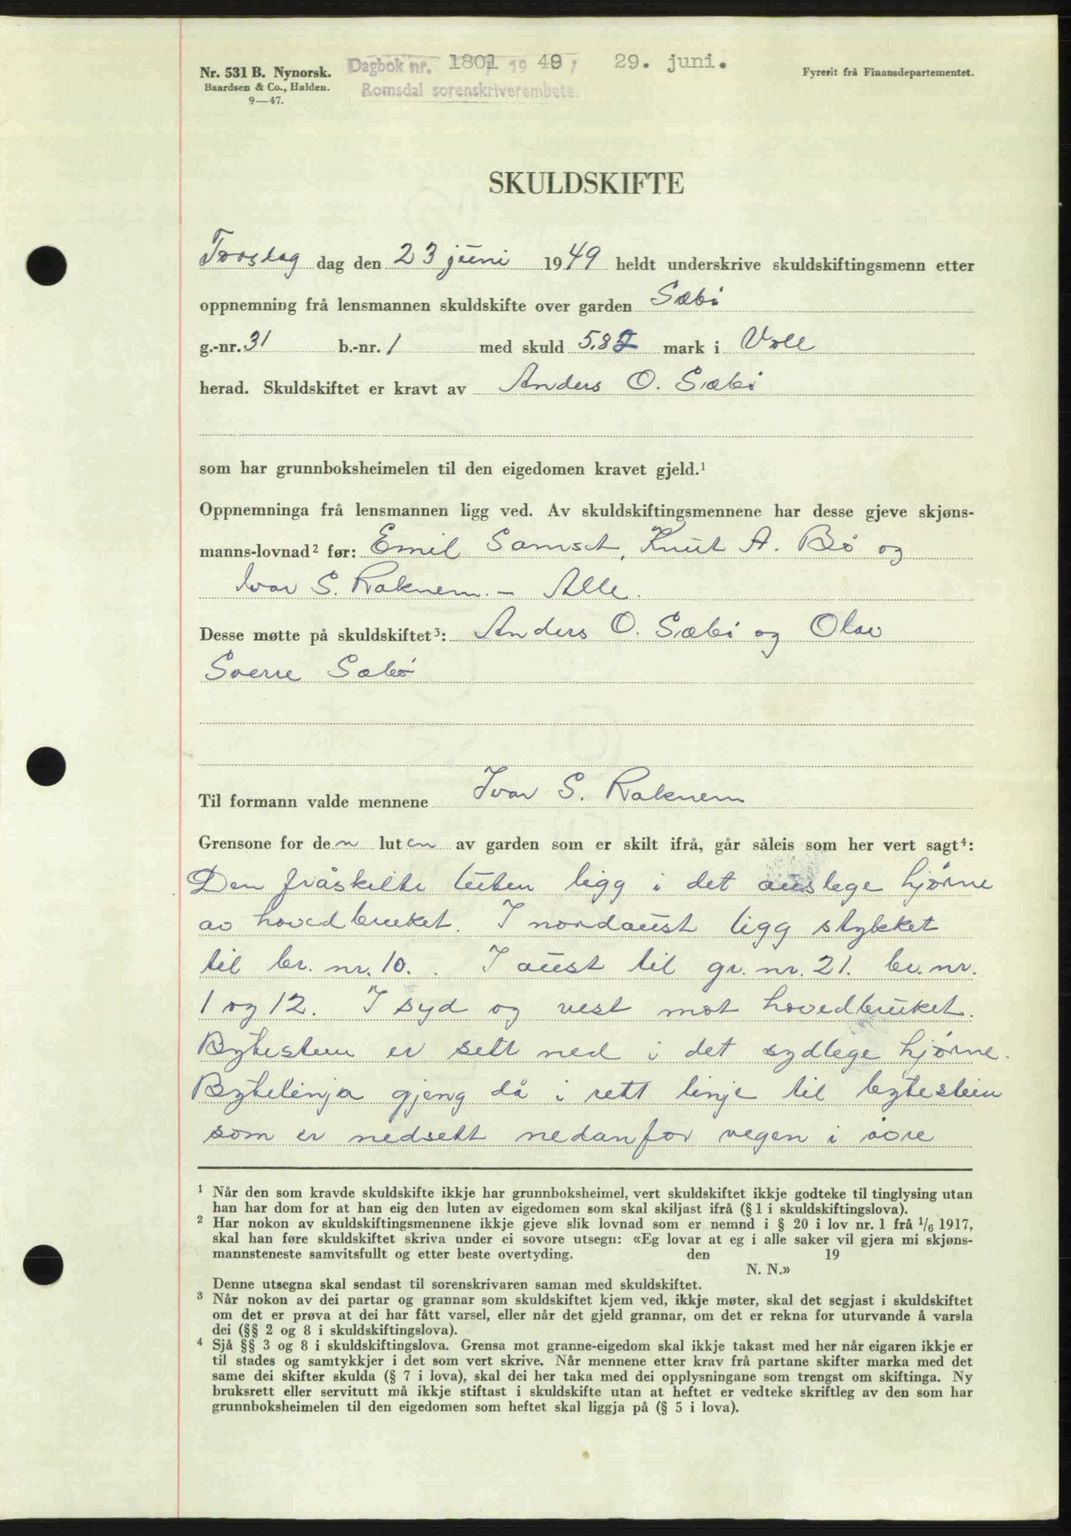 Nr. 531 B. Nynorsk.
Baardsen & Co., Halden.
9—47.
Dagbok nr. 1801 1949, 29. juni.
Romsdal sorenskriverembete.
Fyrerit frå Finansdepartementet.
SKULDSKIFTE
Torsdag dag den 23 juni 1949 heldt underskrive skuldskiftingsmenn etter
oppnemning frå lensmannen skuldskifte over garden Sæbø
g.-nr. 31 b.-nr. 1 med skuld 5.82 mark i Voll
herad. Skuldskiftet er kravt av Anders O. Sæbø
som har grunnboksheimelen til den eigedomen kravet gjeld.¹
Oppnemninga frå lensmannen ligg ved. Av skuldskiftingsmennene har desse gjeve skjøns-
manns-lovnad² før: Emil Samset, Knut A. Bø og
Ivar S. Raknem. — Alle.
Desse møtte på skuldskiftet³: Anders O. Sæbø og Olav
Sverre Sæbø
Til formann valde mennene Ivar S. Raknem
Grensone for den luten av garden som er skilt ifrå, går såleis som her vert sagt⁴:
Den fråskilte luten ligg i det austlege hjørne
av hovedbruket. I nordaust ligg stykket
til br. nr. 10. I aust til gr. nr. 21. br. nr.
1 og 12. I syd og vest mot hovedbruket.
Bytestein er sett ned i det sydlege hjørne.
Bytelinja gjeng då i rett linje til bytestein
som er nedsett nedanfor vegen i øvre
¹ Når den som kravde skuldskifte ikkje har grunnboksheimel, vert skuldskiftet ikkje godteke til tinglysing utan
han har dom for at han eig den luten av eigedomen som skal skiljast ifrå (§ 1 i skuldskiftingslova).
² Har nokon av skuldskiftingsmennene ikkje gjeve slik lovnad som er nemnd i § 20 i lov nr. 1 frå 1/6 1917,
skal han føre skuldskiftet skriva under ei sovore utsegn: «Eg lovar at eg i alle saker vil gjera mi skjøns-
mannsteneste samvitsfullt og etter beste overtyding. den 19
N. N.»
Denne utsegna skal sendast til sorenskrivaren saman med skuldskiftet.
³ Når nokon av dei partar og grannar som skuldskiftet kjem ved, ikkje møter, skal det segjast i skuldskiftet
om det er prøva at dei har fått varsel, eller når det gjeld grannar, om det er rekna for uturvande å varsla
dei (§§ 2 og 8 i skuldskiftingslova).
⁴ Sjå §§ 3 og 8 i skuldskiftingslova. Grensa mot granne-eigedom skal ikkje takast med her når eigaren ikkje er
til stades og samtykkjer i det som vert skrive. Når mennene etter krav frå partane skifter marka med det
same dei skifter skulda (§ 7 i lova), skal dei her taka med dei opplysningane som trengst om skiftinga. Ny
bruksrett eller servitutt må ikkje stiftast i skuldskifte utan at heftet er vedteke skriftleg av den som har
grunnboksheimelen til den eigedomen som heftet skal liggja på (§ 5 i lova).